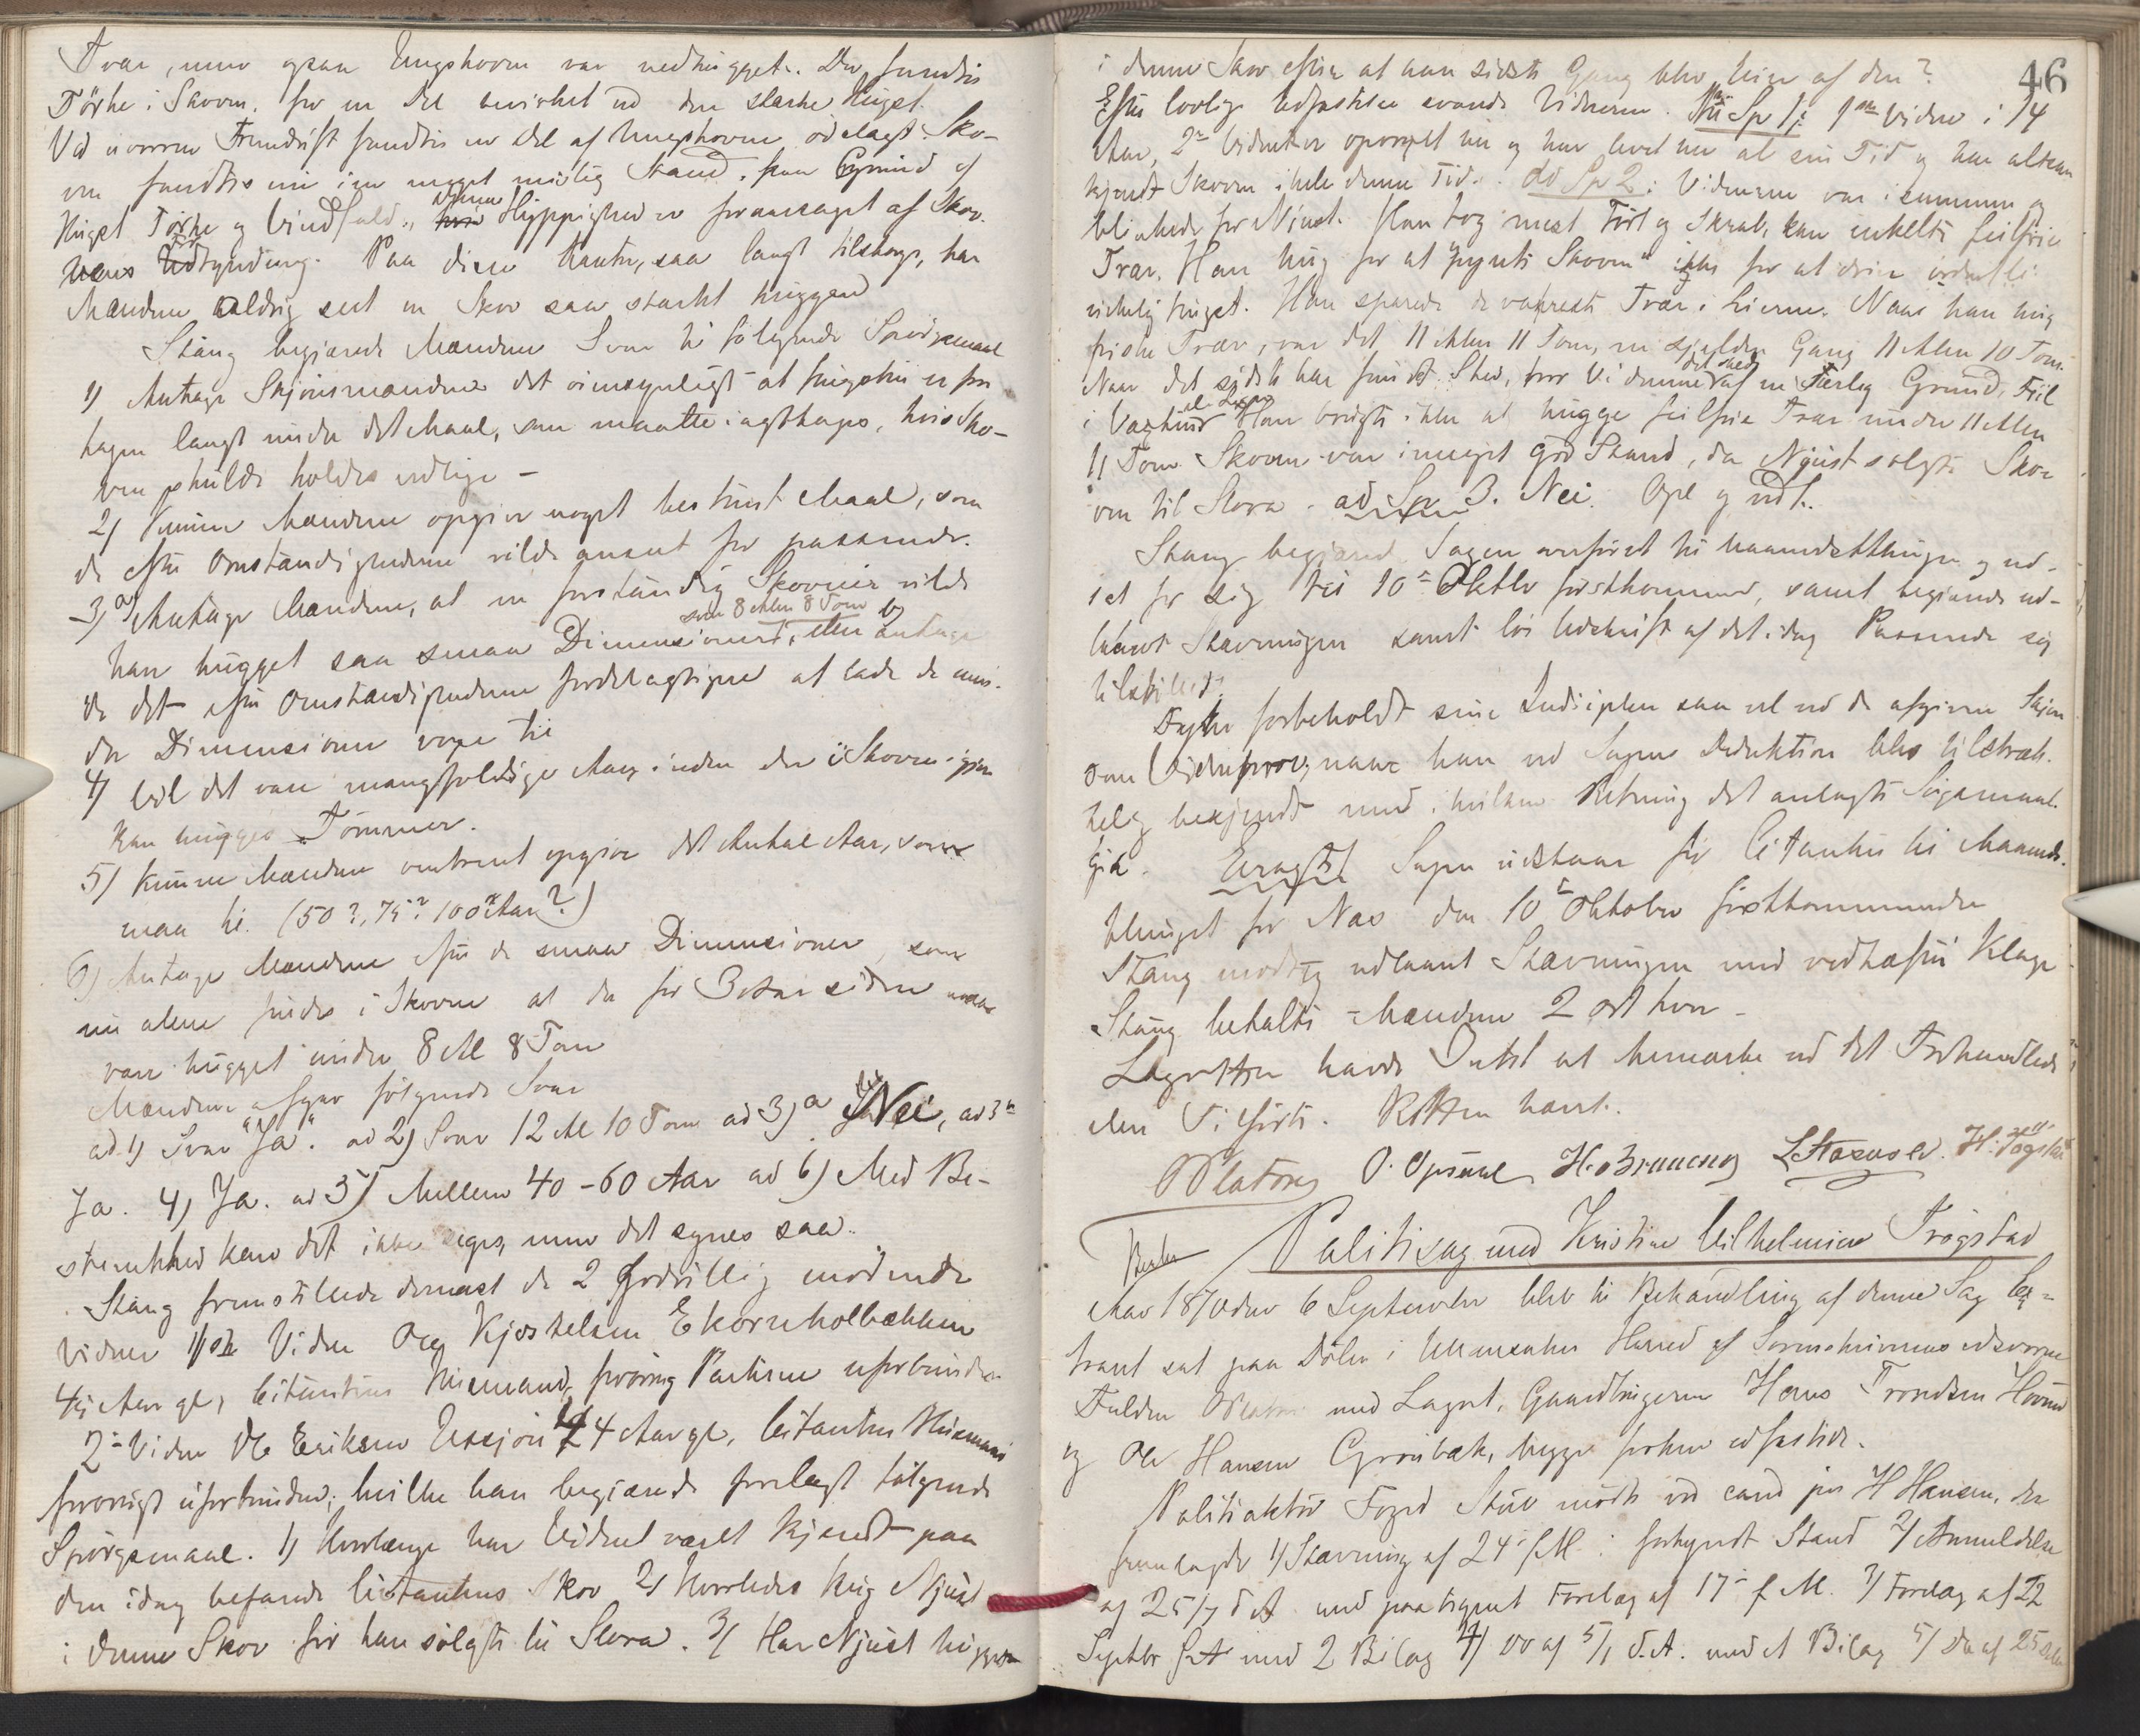 Svar, men ogsaa Ungskoven var nedhugget. Der fandtes
Törke i Skoven, for en Del bevirket ved den stærke Hugst.
Ved Fremdrift fandtes en Del af Ungskoven ödelagt. Sko-
ven fandtes nu i en meget mislig Stand, paa Grund af
Hugst Törke og Vindfald, hvis denne Hyppighed er foraarsaget af Sko-
vens Udtynding. Paa disse Kanter, saa langt tilskogs, har
Mændene aldrig seet en Skov saa stærkt huggen
Stang begjærede Mændenes Svar til fölgende Spörgsmaal
1) Antage Skjönsmændene det öiensynligt at Hugsten er fore-
tagen langt under det Maal, som maatte iagttages, hvis Sko-
ven skulde holdes vedlige -
2) Kunne Mændene opgive noget bestemt Maal, som
de efter Omstændighederne vilde anseet for passende.
3) a Antage Mændene, at en forstandig Skoveier vilde
have hugget saa smaa Dimensioner som 8 Alen 8 Tom, eller b antage
de det efter Omstændighederne fordelagtigere at lade de min-
dre Dimensioner voxe til
4) Vil det vare mangfoldige Aar inden der i Skoven igjen
kan hugges Tömmer.
5) Kunne Mændene omtrent opgive det Antal Aar, som
maa til. (50?, 75? 100 Aar?)
6) Antage Mændene efter de smaa Dimensioner, som
nu alene findes i Skoven at der for 3 Aar siden maa
være hugget under 8 Al 8 Tom
Mændene afgav fölgende Svar
ad 1) Svar "Ja". ad 2) Svar 12 Al 10 Tom ad 3) a Nei, ad 3 b
Ja. 4) Ja. ad 5) Mellem 40 - 60 Aar ad 6) Med Be-
stemthed kan det ikke siges, men det synes saa.
Stang fremstillede dernæst de 2 godvillig mödende
Vidner 1ste Vidne Ole Kjostelsen Ekornholbækken
45 Aar gl, Citantens Huusmand, forövrig Parterne uforbunden
2det Vidne Ole Eriksen 24 Aar gl, Citantens Huusmand
forövrigt uforbunden; hvilke han begjærede forelagt fölgende
Spörgsmaal. 1) Hvorlænge har Vidnet været kjendt paa
den idag befarede Citantens Skov 2) Hvorledes hug Njust
i denne Skov för han solgte til Slora. 3) Har Njust hugget
46
i denne Skov efter at han sidste Gang blev Eier af den?
Efter lovlig Edfæstelse svarede Vidnerne. Til Sp 1: 1ste Vidne i 14
Aar, 2det Vidnet er opvoxet her og har levet her al sin Tid og har altsaa
kjendt Skoven i hele denne Tid. ad Sp 2: Vidnerne var isammen og
blinkede for Njust. Han tog mest Tört og Skrab, kun enkelte feilfrie
Trær. Han hug for at "pynte Skoven" ikke for at drive ordentlig
virkelig Hugst. Han sparede de vakreste Trær i Lierne. Naar han hug
friske Trær, var det 11 Alen 11 Tom, en sjelden Gang 11 Alen 10 Tom.
Naar det sidste har fundet Sted, tror Vidnerne det skede af en særlig Grund, Feil
i Væxten Han brugte ikke at hugge feilfrie Trær under 11 Alen
11 Tom. Skoven var i meget god Stand, da Njust solgte Sko-
ven til Slora. ad Sp 3. Nei. Opl og vedt.
Stang begjæred Sagen overfört til Maanedsthinget og ud-
sat for sig til 10de Oktbr förstkommend, samt begjærede ud-
laant Stævningen samt lös Udskrift af det idag Passerede sig
tilstillet.
forbeholdt sine Indsigelser saavel ved de afgivne Skjön
som Vidneprov, naar han ved Sagens Deduktion blev tilstræk-
kelig bekjendt med i hvilken Retning det anlagte Sögsmaal
gik. Eragtet Sagen udstaar for Citanten til Maaneds-
thinget for Næs den 10de Oktober förstkommende
Stang modtog udlaant Stævningen med vedhæftet Klage
Stang betalte Mændene 2 ort hver -
Lagretten havde Intet at bemærke ved det Forhandlede
eller Tilförte. Retten hævet.
O. Opsaael H. Brucnes L. Staxasr. H. Togstad
Politisag mod Kristine Vilhelmine Trögstad
Aar 1870 den 6 September blev til Behandling af denne Sag Ex-
traret sat paa Dölen i Ullensaker Herred af Sorenskriverens edsvorne
Fuldm med Lagret, Gaardbrugerne Hans Trondsen Hovin
og Ole Hansen Grönbæk, begge forhen edfæstede.
Politiaktör Foged Stub mödte ved cand jur H Hansen, der
fremlagde 1) Stævning af 24de f.M. i forkyndt Stand 2) Anmeldelse
af 25/7 d A med paategnet Forelæg af 17de f M. 3) Forelæg af 22
Septbr f A med 2 Bilag 4) Do af 5/1 d.A. med et Bilag 5) Do af 25